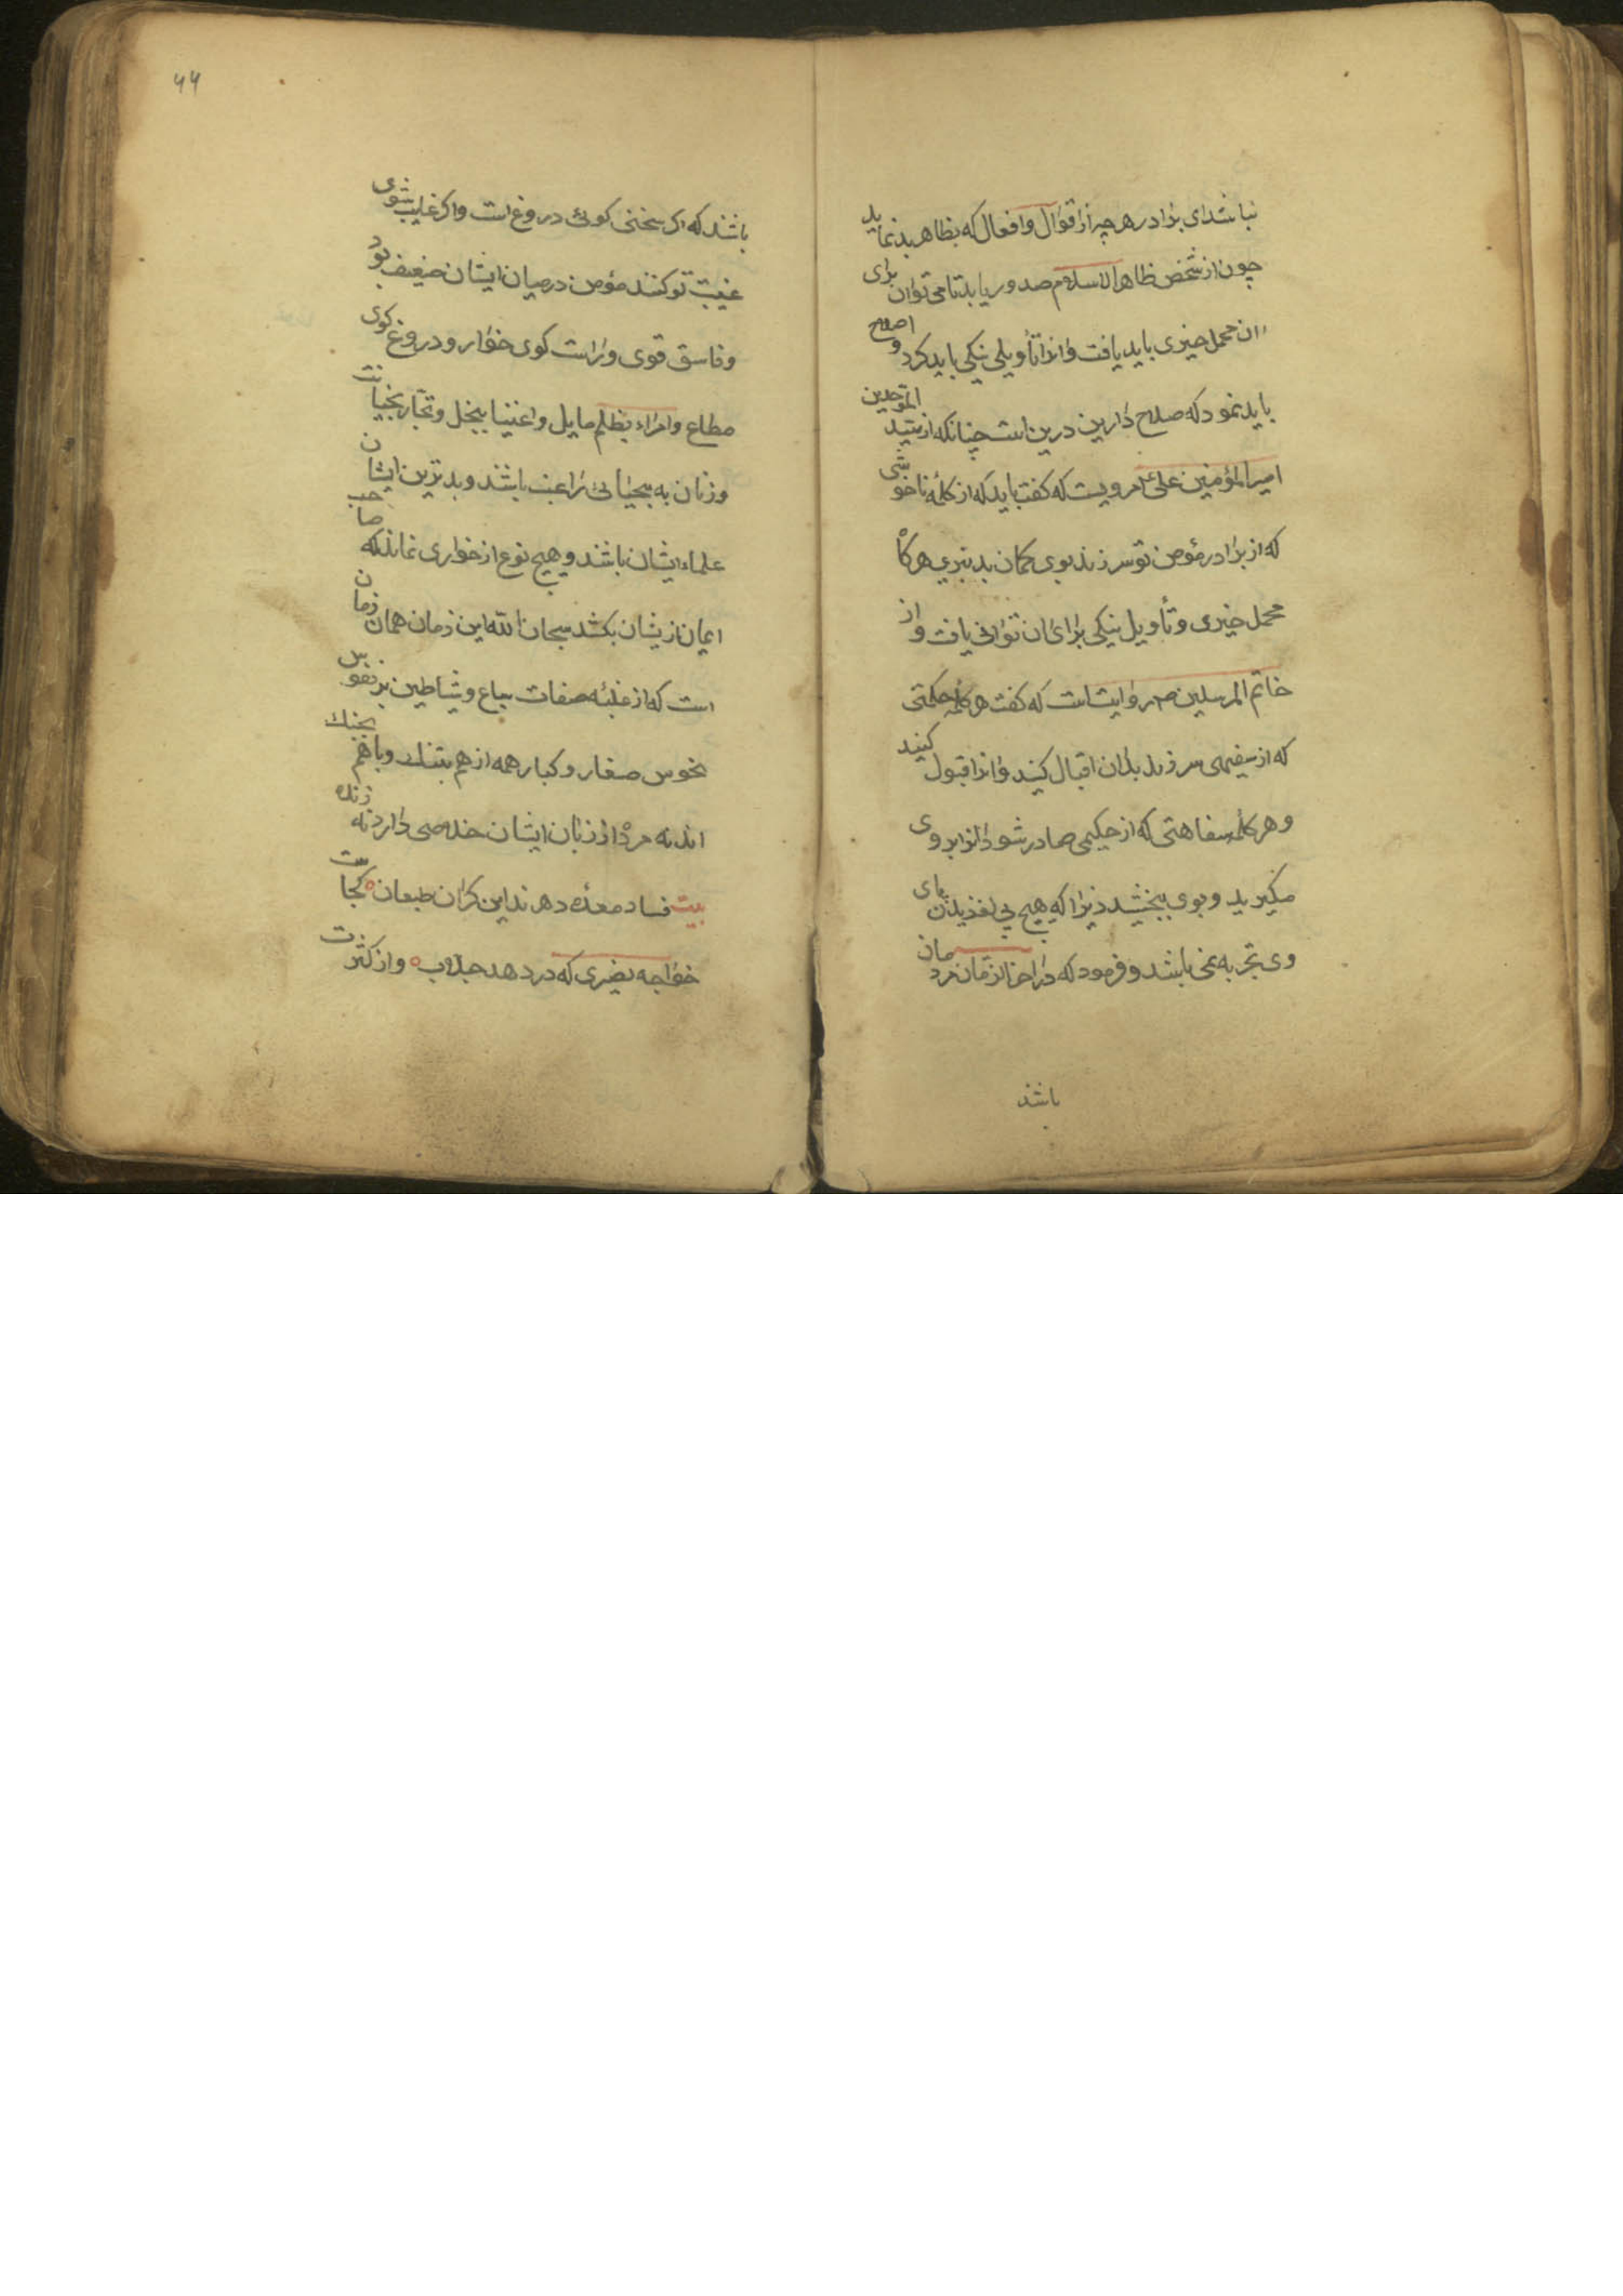 نباشد ای برادر هر چه از اقوال و افعال که بظاهر بد نماید
چون از شخص ظاهر الاسلام صدور یابد تا می توان برای
ان محمل خیری باید یافت و انرا تأویلی نیکی باید کرد و اصلاح
باید نمود که صلاح دارین درین است چنانکه از سید الموحدین
امیر المؤمنین علی مرویست که گفت باید که از کلمه ناخوشی
که از برادر مؤمن تو سر زند بوی گمان بد نبری هر گاه
محمل خیری و تأویل نیکی برای ان توانی یافت و از
خاتم المرسلین ص روایتست که گفت هر کلمه حکمتی
که از سفیهی سر زند بدان اقبال کنید و انرا قبول کنید
و هر کلمه سفاهتی که از حکیمی صادر شود انرا بر وی
مگیرید و بوی ببخشید زیرا که هیچ بی لغزیدن پای
وی تجربه نمی باشد و فرمود که در اخر الزمان مردمان
باشند
۴۴
باشند که اکر سخنی کوئی دروغ است و اکر غایب شوی
غیبت تو کنند مؤمن در میان ایشان ضعیف بود
و فاسق قوی و راست کوی خوار و دروغ کوی
مطاع و امراء بظلم مایل و اغنیا ببخل و تجار بخیانت
و زنان به بیحیائی راغب باشند و بدترین ایشان
علماء ایشان باشند و هیچ نوع از خواری نماند که صاحب
ایمان از یشان بکشد سبحان الله این زمان همان زمان
است که از غلبه صفات سباع و شیاطین بر نفوس
نحوس صغار و کبار همه از هم بتنك و با هم بجنك
اند نه مرده از زبان ایشان خلاصی دارد نه زنده
بیت فساد معده دهر ند این کران طبعان کجاست
خواجه نصیری که در دهد جلاب و از کثرت